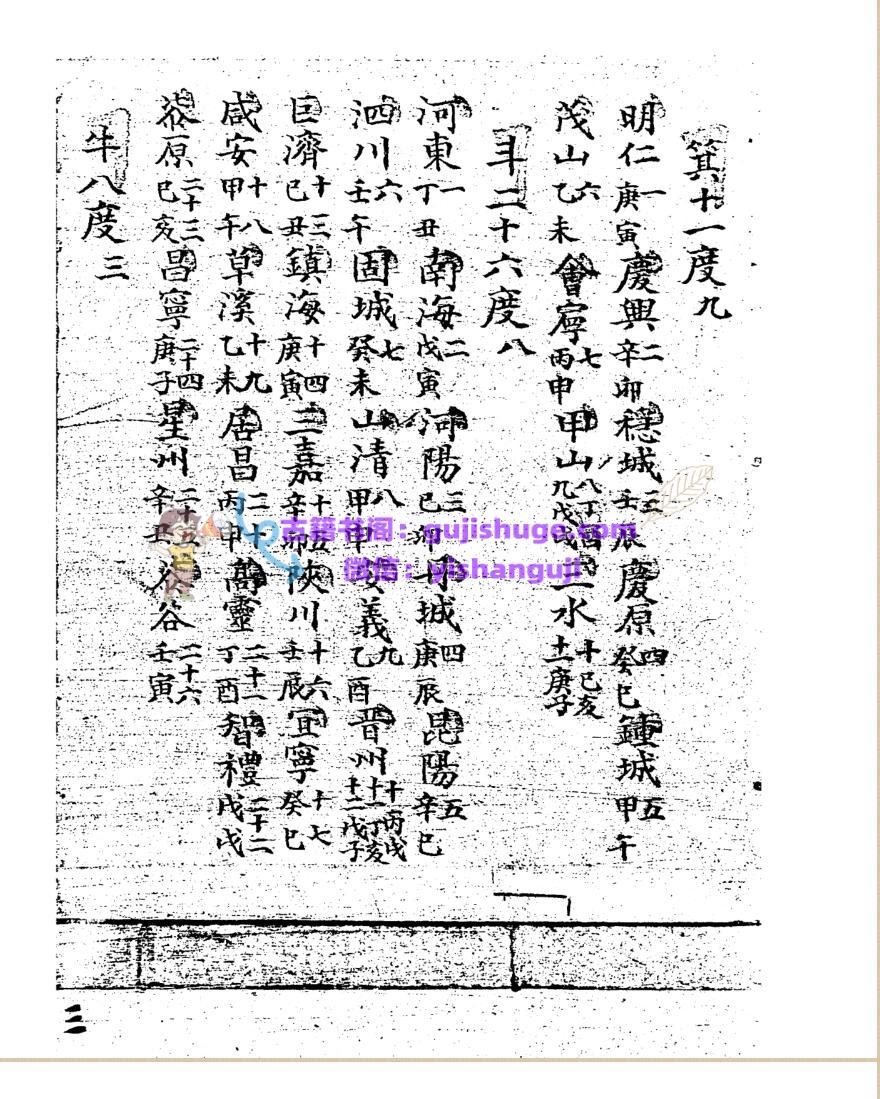 箕十一度九
明仁一庚寅 慶興二辛卯 穩城三壬辰 慶原四癸巳 鍾城五甲午
茂山六乙未 會寧七丙申 甲山八丁酉九戊戌 三水十己亥十一庚子
斗二十六度八
河東一丁丑 南海二戊寅 河陽三己卯 丹城四庚辰 昆陽五辛巳
泗川六壬午 固城七癸未 山清八甲申 安義九乙酉 晋州十丙戌十一丁亥十二戊子
巨濟十三己丑 鎮海十四庚寅 三嘉十五辛卯 陜川十六壬辰 宜寧十七癸巳
咸安十八甲午 草溪十九乙未 居昌二十丙申 高靈二十一丁酉 智禮二十二戊戌
原二十三己亥 昌寧二十四庚子 星州二十五辛丑 谷二十六壬寅
牛八度三
三
古籍书阁：gujishuge.com
微信：yishanguji